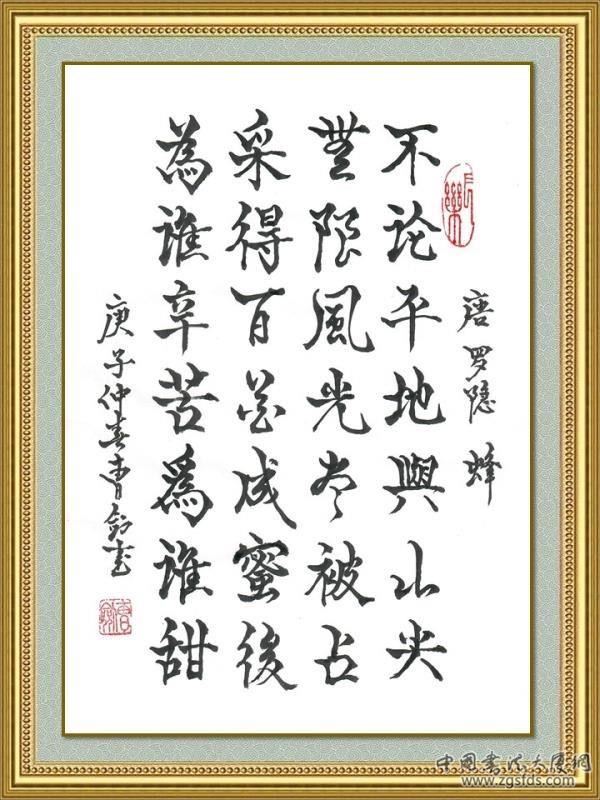 唐罗隐 蜂
不论平地與山尖
無限風光尽被占
采得百花成蜜後
為谁辛苦爲谁甜
庚子仲春曹剑书
中国書法大厦網
www.zgsfds.com